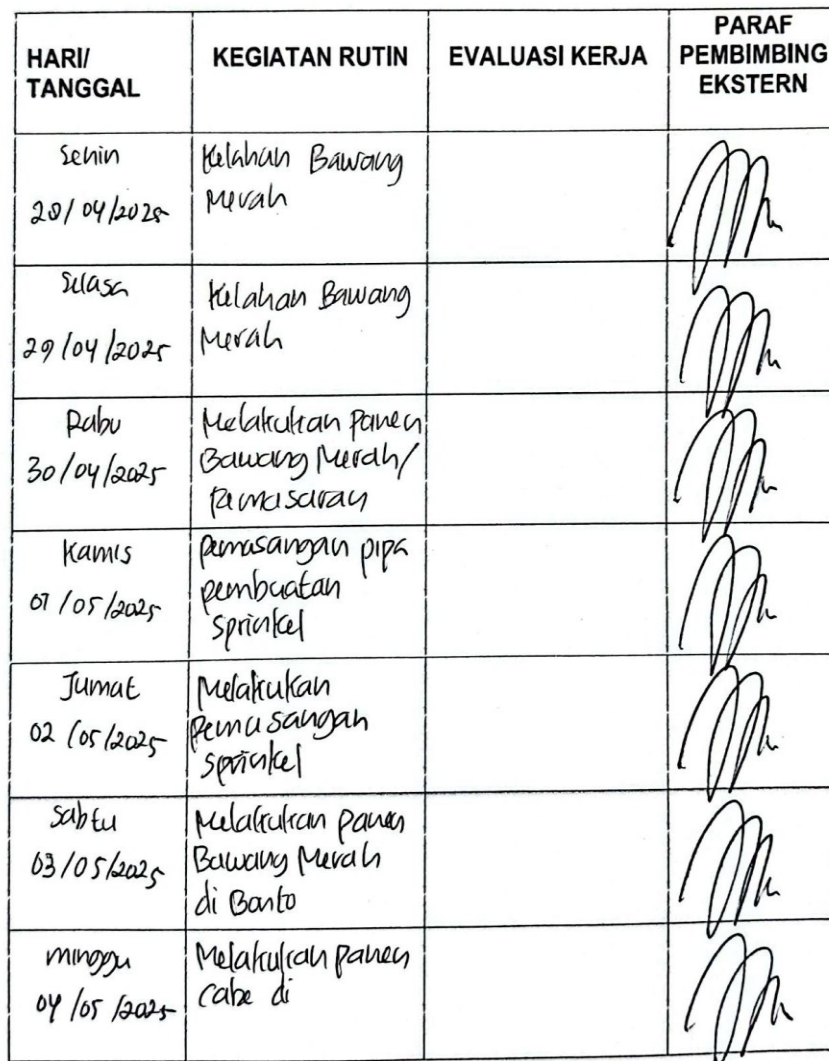 HARI/
TANGGAL
KEGIATAN RUTIN
EVALUASI KERJA
PARAF
PEMBIMBING
EKSTERN
Senin
28/04/2025
Kelahan Bawang
Merah
Selasa
29/04/2025
Kelahan Bawang
Merah
Rabu
30/04/2025
Melakukan Panen
Bawang Merah/
Pemasaran
Kamis
01/05/2025
pemasangan pipa
pembuatan
sprinkel
Jumat
02/05/2025
Melakukan
Pemasangan
sprinkel
Sabtu
03/05/2025
Melakukan panen
Bawang Merah
di Bonto
minggu
04/05/2025
Melakukan panen
cabe di